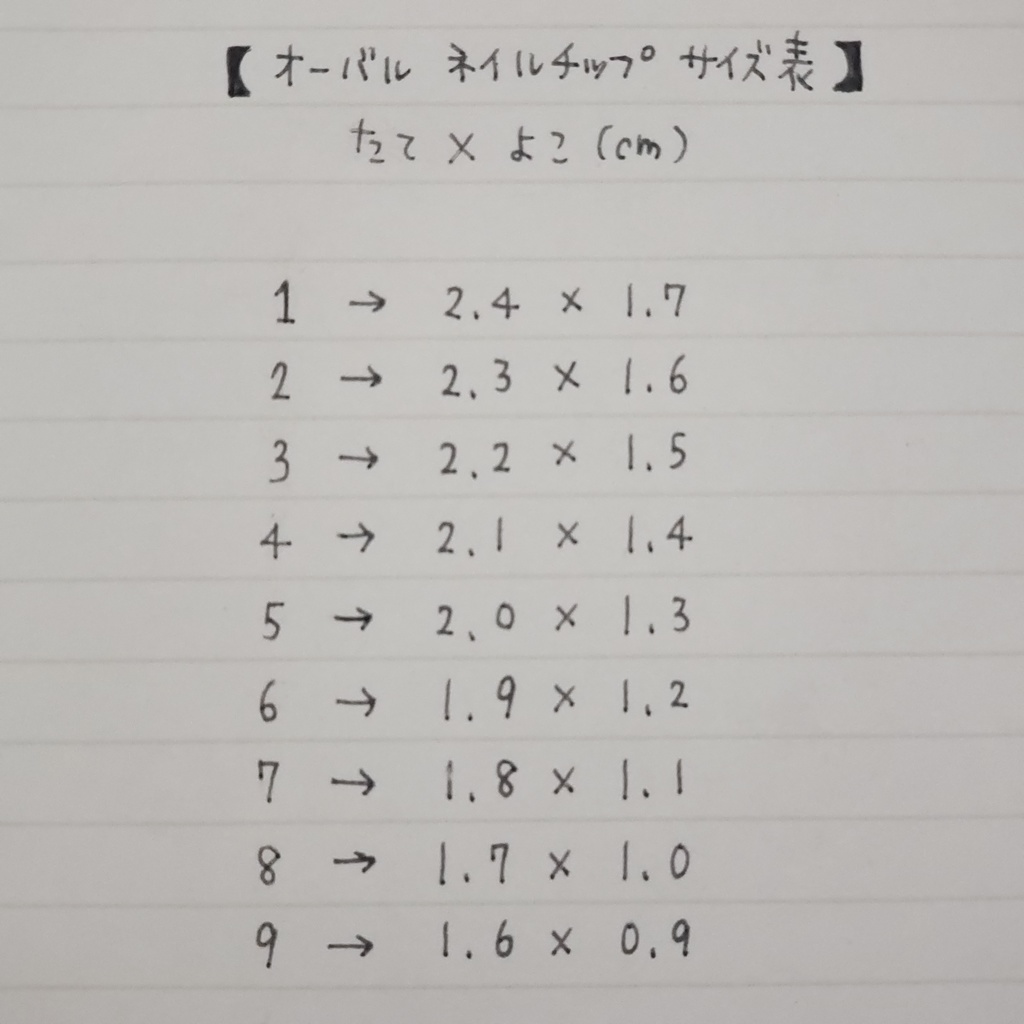 【オーバル ネイルチップ サイズ表】
たて × よこ (cm)
1 → 2.4 × 1.7
2 → 2.3 × 1.6
3 → 2.2 × 1.5
4 → 2.1 × 1.4
5 → 2.0 × 1.3
6 → 1.9 × 1.2
7 → 1.8 × 1.1
8 → 1.7 × 1.0
9 → 1.6 × 0.9